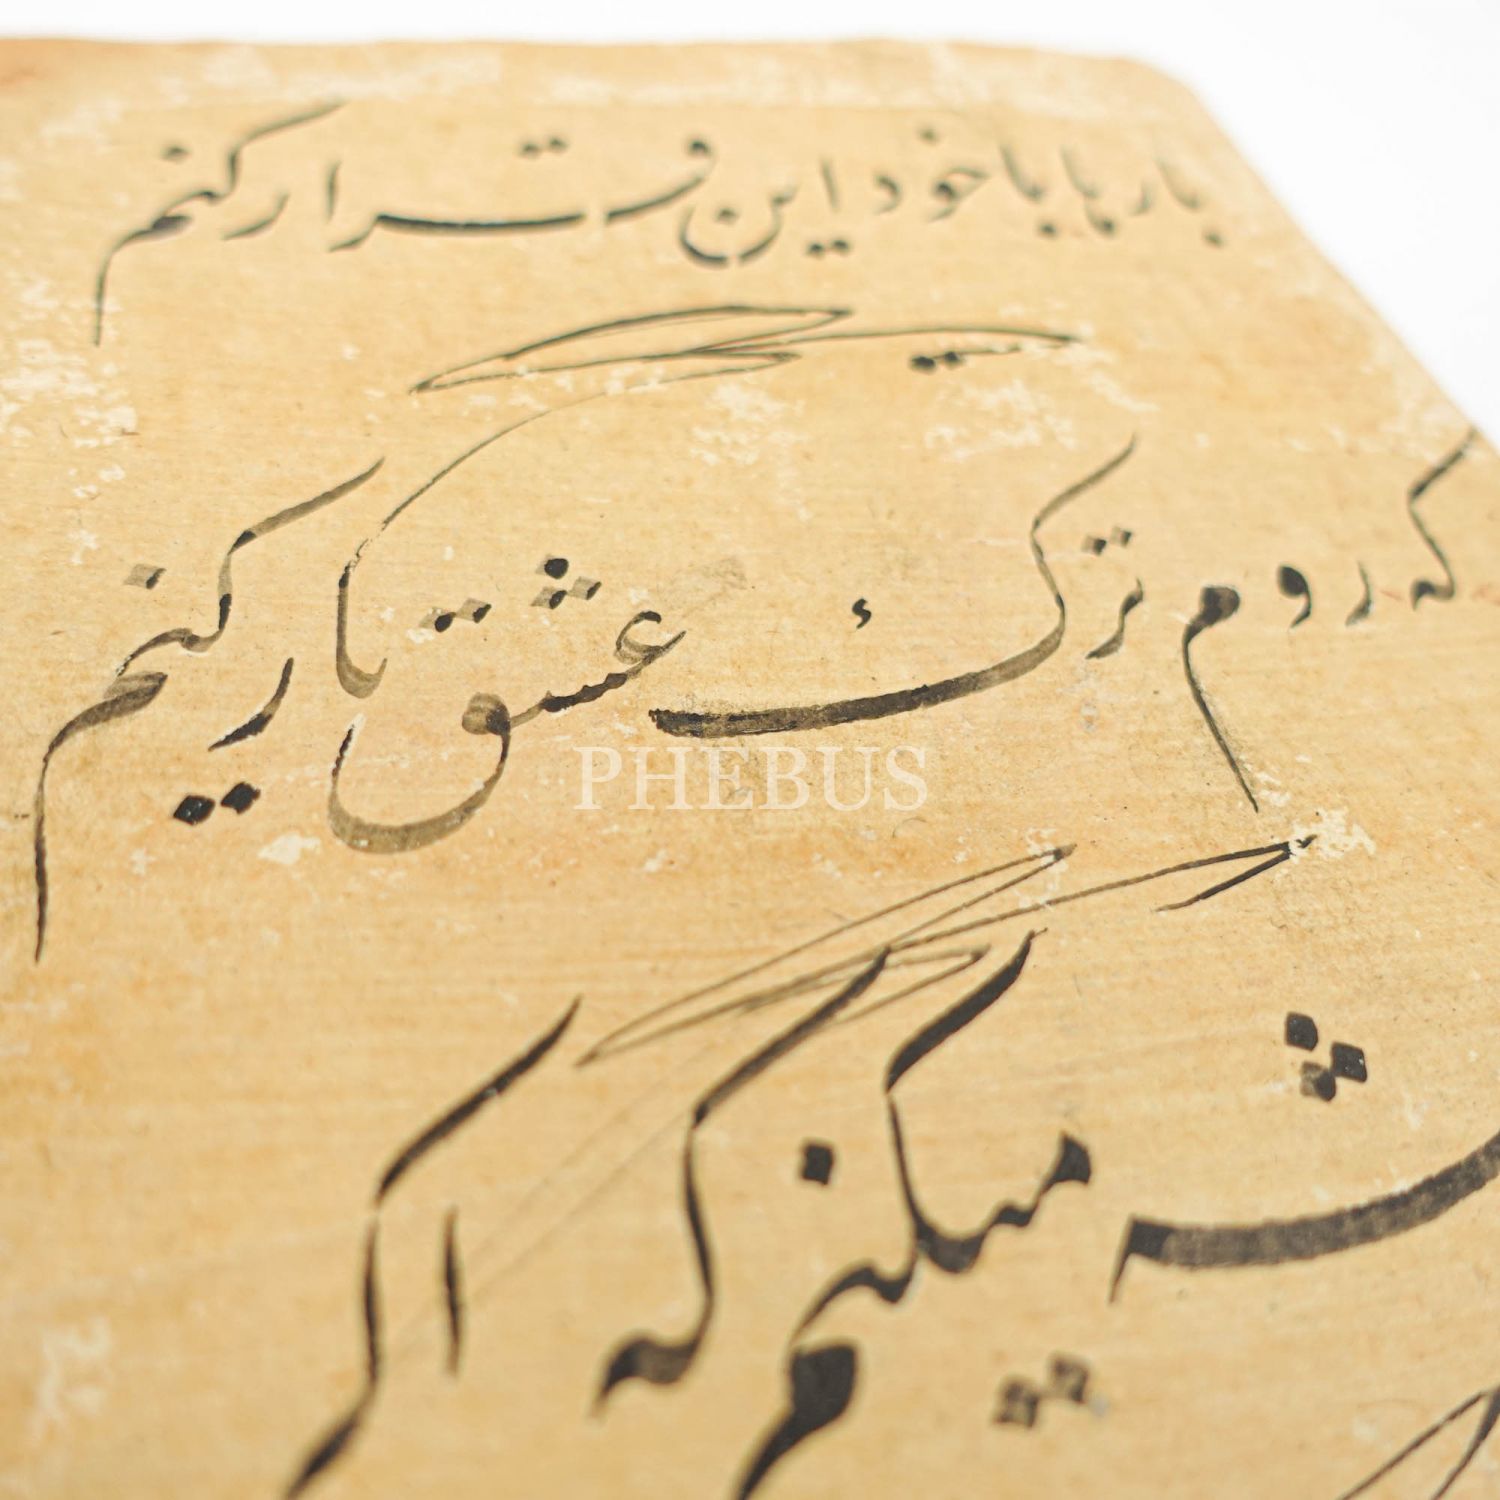 بارها با خود این قرار کنم
که روم ترک عشق یار کنم
میکنم که اگر
PHEBUS